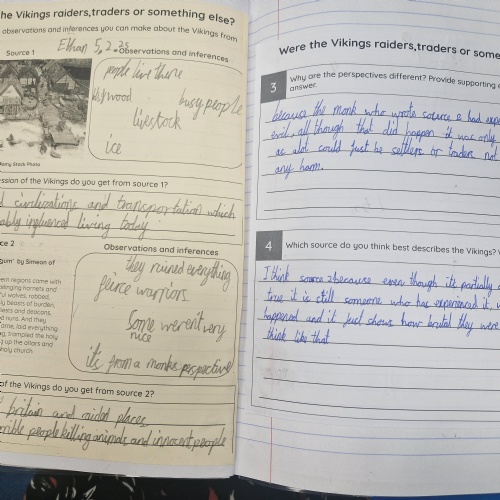 the Vikings raiders,traders or something else?
observations and inferences you can make about the Vikings from
Ethan 5,2.25
Source 1
Observations and inferences
people live there
wood
busy people
livestock
ice
Stock Photo
ession of the Vikings do you get from source 1?
civilizations and transportation which
ably influenced living today
ce 2
Observations and inferences
gum' by Simeon of
ern regions came with
nding hornets and
ful wolves, robbed,
ly beasts of burden,
iests and deacons,
d nuns. And they
ame, laid everything
ng, trampled the holy
g up the altars and
holy church.
they ruined everything
fierce warriors
Some werent very
nice
its from a monks perspective
of the Vikings do you get from source 2?
britain and raided places
orrible people killing animals and innocent people
Were the Vikings raiders,traders or some
3
Why are the perspectives different? Provide supporting
answer.
because the monk who wrote source 2 had exper
evil, all though that did happen it was only
as alot could just be settlers or traders not
any harm.
4
Which source do you think best describes the Vikings?
I think source 2 because even though its partially
true it is still someone who has experienced it,
happened and it just shows how brutal they were
think like that